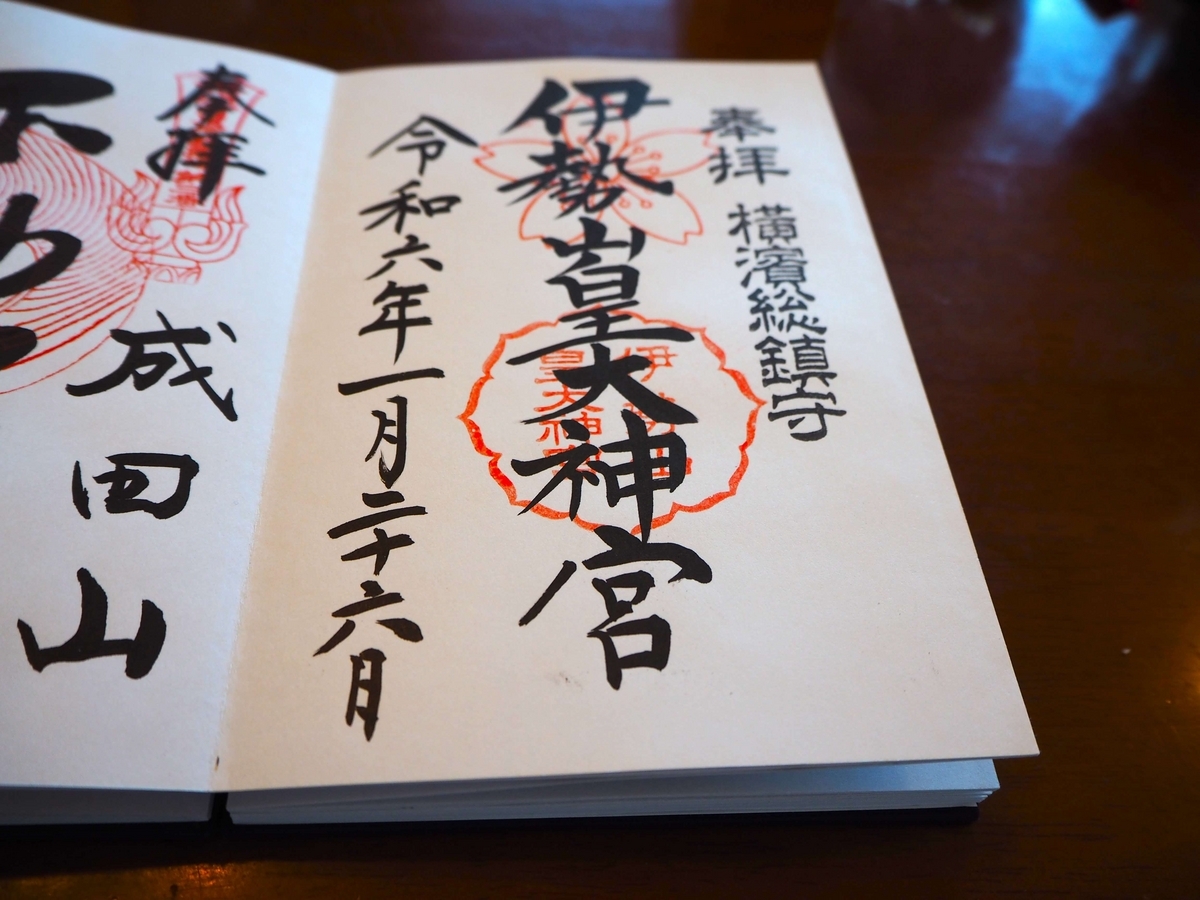 奉拝 横濱総鎮守
伊勢山皇大神宮
伊勢山
皇大神宮
令和六年一月二十六日
奉拝
成田山
不